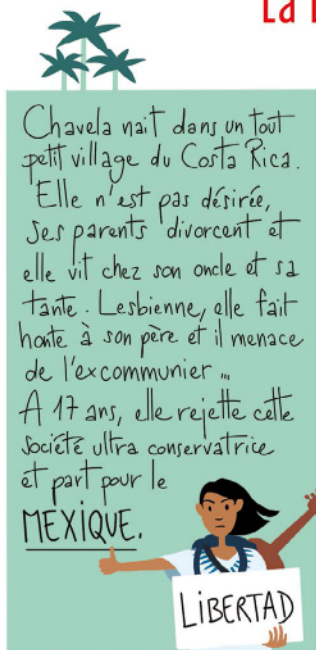 La
Chavela nait dans un tout
petit village du Costa Rica.
Elle n'est pas désirée,
ses parents divorcent et
elle vit chez son oncle et sa
tante. Lesbienne, elle fait
honte à son père et il menace
de l'excommunier...
A 17 ans, elle rejette cette
société ultra conservatrice
et part pour le
MEXIQUE.
LIBERTAD